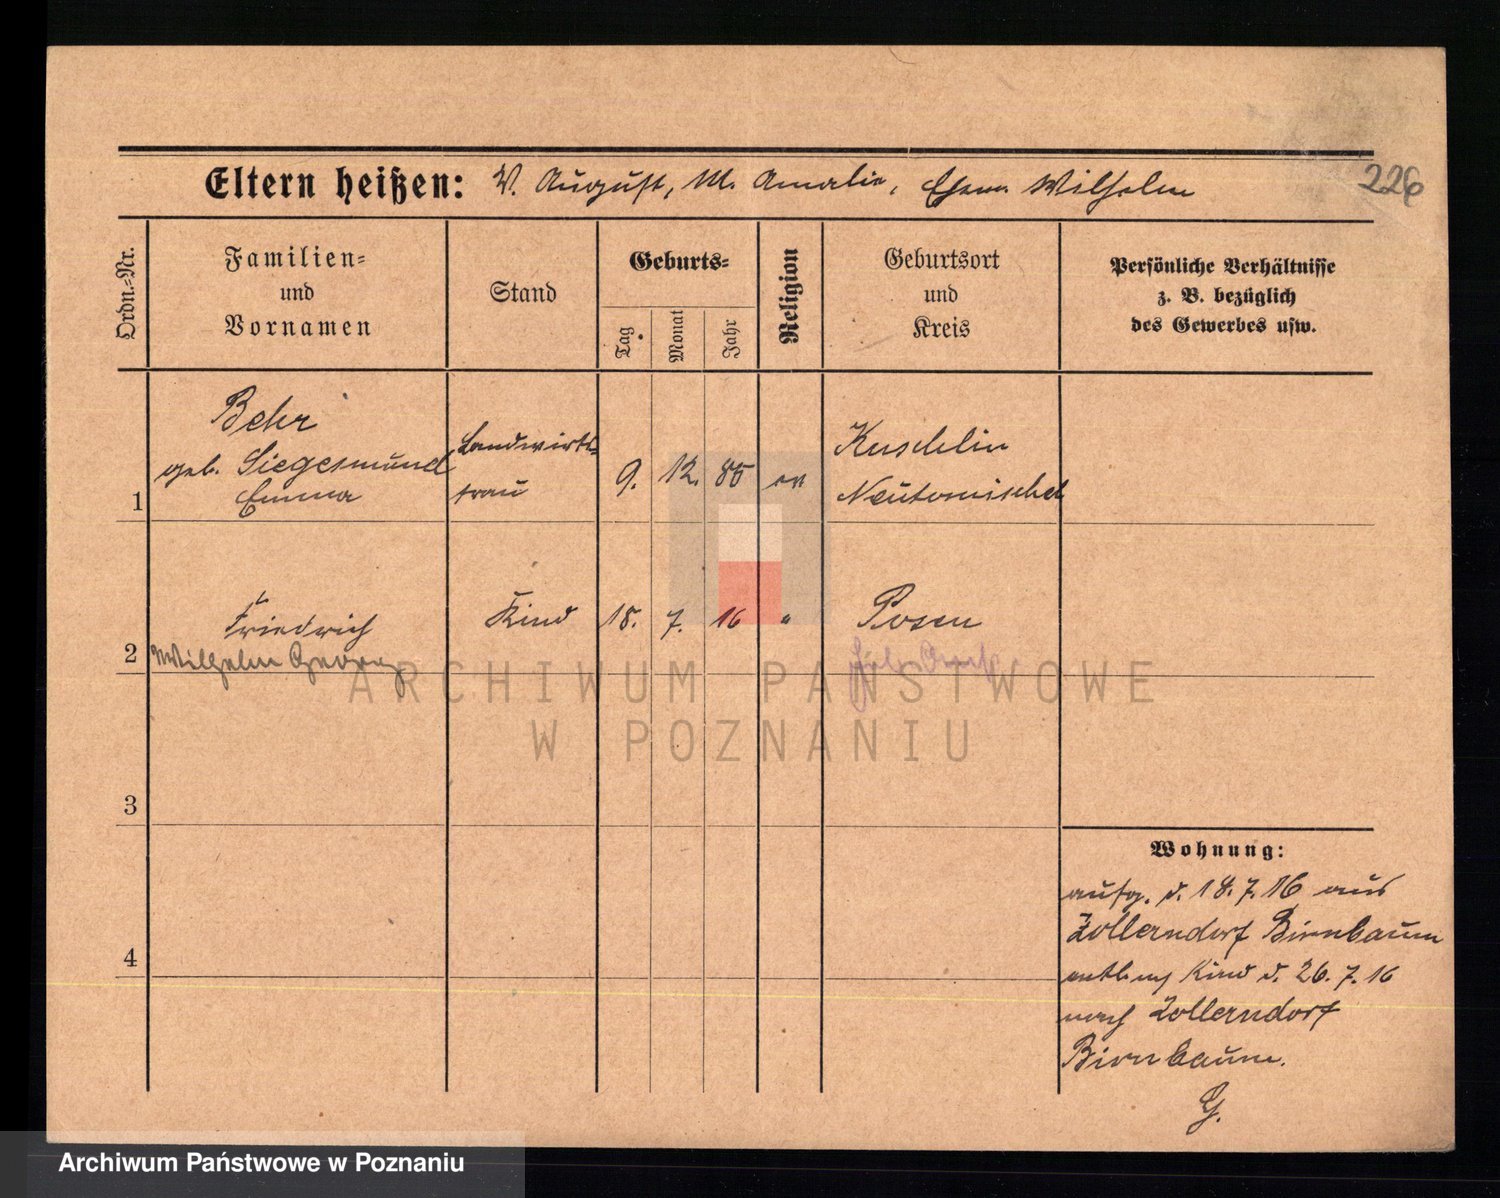 Eltern heißen: V. August, M. Amalie, Ehem. Wilhelm
226
Ordn.-Nr.
Familien-
und
Vornamen
Stand
Geburts-
Tag
Monat
Jahr
Religion
Geburtsort
und
Kreis
Persönliche Verhältnisse
z. B. bezüglich
des Gewerbes usw.
1
Behr
geb. Siegesmund
Emma
Landwirts-
frau
9. 12. 85 ev
Kuschlin
Neutomischel
2
Friedrich
Wilhelm Georg
Kind
18. 7. 16 "
Posen
3
4
Wohnung:
aufg. d. 18.7.16 aus
Zollerndorf Birnbaum
entl. Kind d. 26.7.16
nach Zollerndorf
Birnbaum.
G.
ARCHIWUM PAŃSTWOWE
W POZNANIU
Archiwum Państwowe w Poznaniu